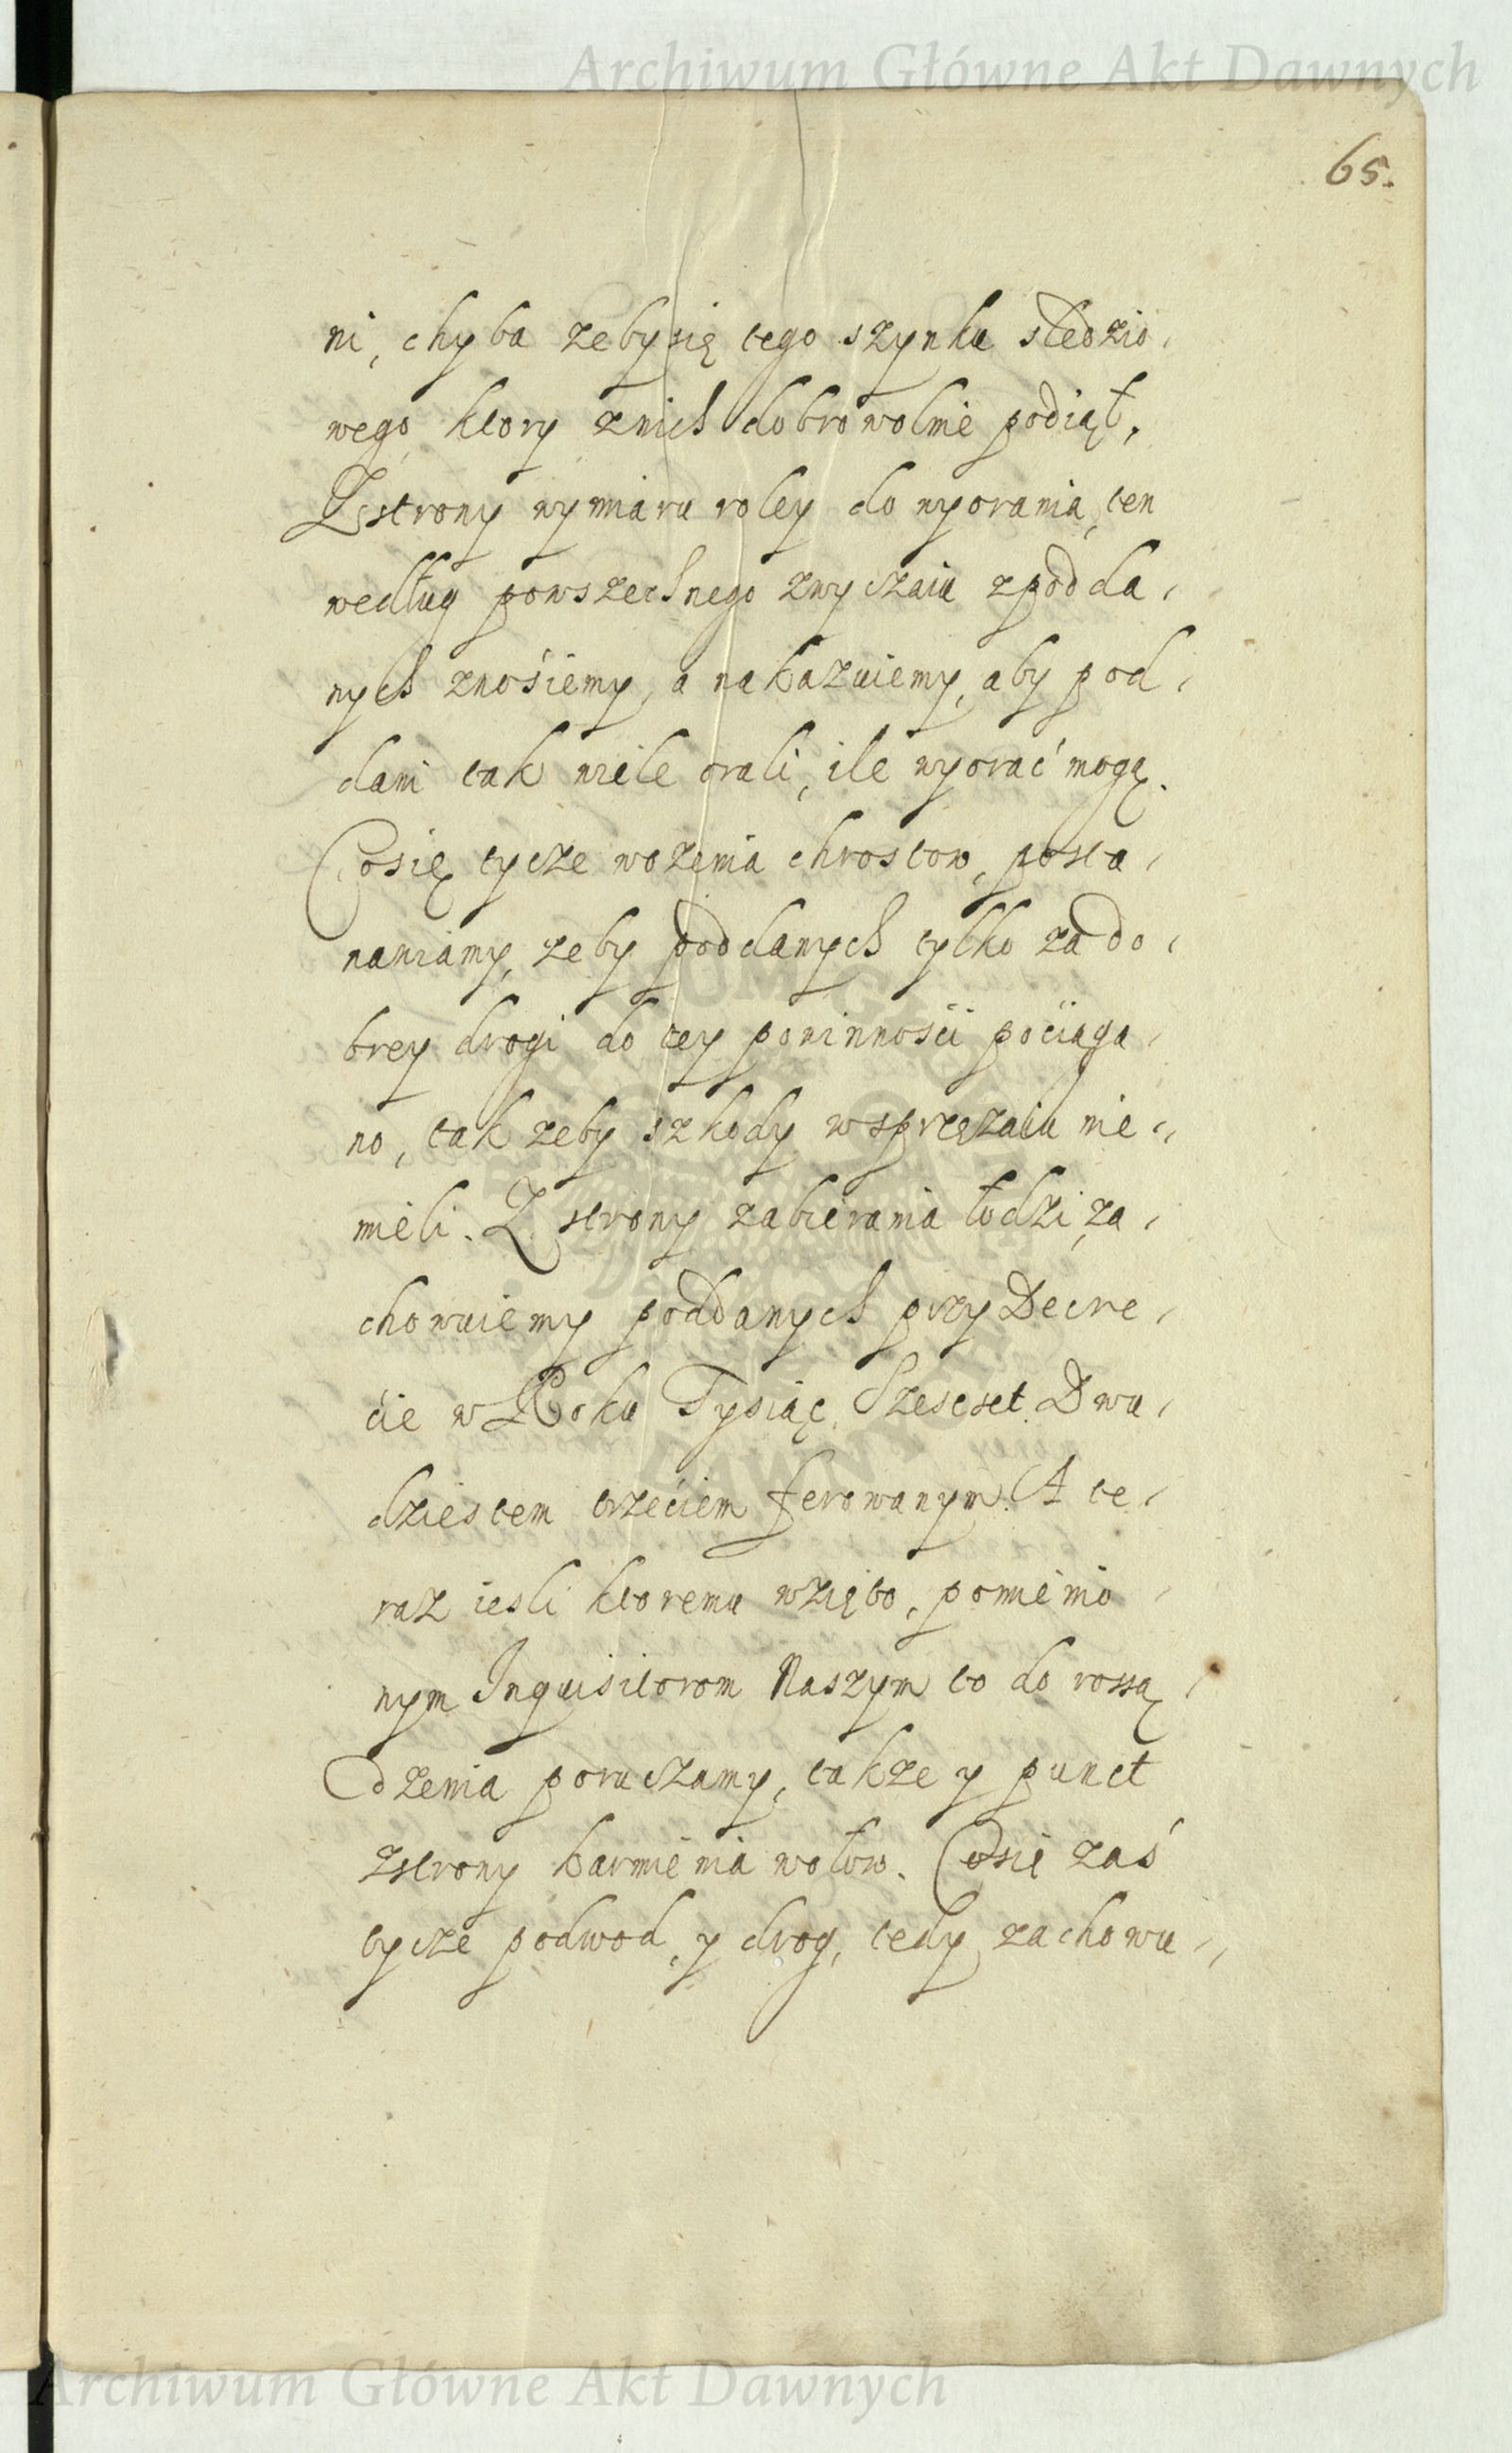 Archiwum Główne Akt Dawnych
65.
ni, chyba zeby się tego szynku sledzio,
wego, ktory znich dobrowolnie podiął,
Zstrony wymiaru roley do wyorania, ten
według powszechnego zwyczaiu zpodda,
nych znośiemy, a nakazuiemy, aby pod,
dani tak wiele orali, ile wyorać mogą.
Cosię tycze wozenia chrostow, posta,
nawiamy, zeby poddanych tylko za do,
brey drogi do tey powinnośći poćiąga,
no, tak zeby szkody wsprzęzaiu nie,,
mieli. Z strony zabierania łodzi, za,
chowuiemy poddanych przy Decre,
ćie w Roku Tysiąc Szescset Dwu,
dziestem trzećiem ferowanym. A te,
raz iesli ktoremu wzięto, pomienio,
nym Inquisitorom Naszym to do rossą,
dzenia poruczamy, takze y punct
zstrony karmienia wołow. Cosię zaś
tycze podwod, y drog, tedy zachowu,,
Archiwum Główne Akt Dawnych